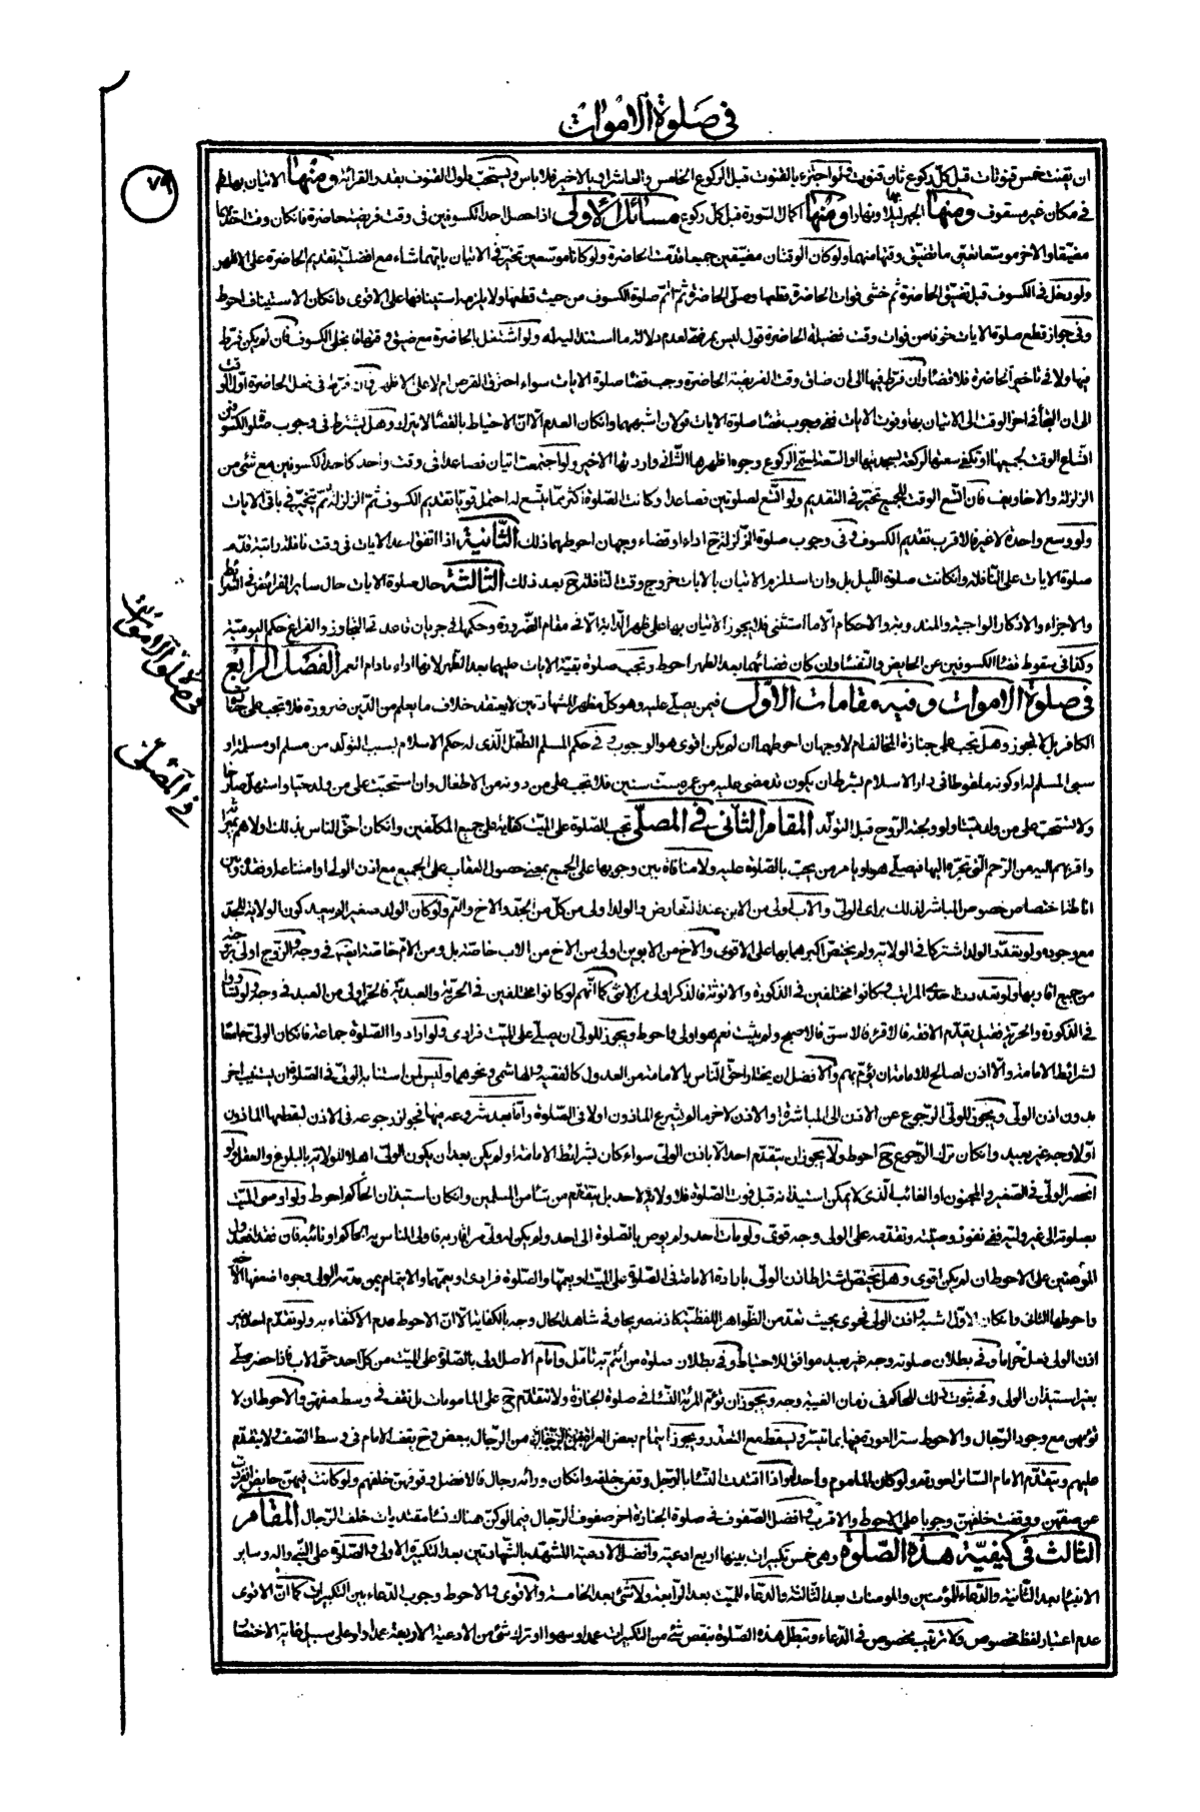 في صلوة الاموات
٧٩
ان يقنت خمس قنوتات قبل كل ركوع ثان قنوت ولو اجتزء بالقنوت قبل الركوع الخامس والعاشر او بالاخير فلا باس ويستحب طول القنوت بقدر القرائة ومنها الاتيان بها
في مكان غير مسقوف ومنها الجهر ليلا ونهارا ومنها اكمال السورة قبل كل ركوع مسائل الاولى اذا حصل احد الكسوفين في وقت فريضة حاضرة فان كان وقت احدهما
مضيقا والاخر موسعا تعين ما تضيق وقتها منهما ولو كان الوقتان مضيقين جميعا قدمت الحاضرة ولو كانا موسعين تخير في الاتيان بايهما شاء مع افضلية تقديم الحاضرة على الاظهر
ولو دخل في الكسوف قبل تضيق الحاضرة ثم خشي فوات الحاضرة قطعها وصلى الحاضرة ثم اتم صلوة الكسوف من حيث قطعها ولا يلزمه استينافها على الاقوى وان كان الاستيناف احوط
وفي جواز قطع صلوة الايات خوفا من فوات وقت فضيلة الحاضرة قول ليس بمرضي لعدم دلالة ما استند اليه له ولو اشتغل بالحاضرة مع ضيق وقتها فانجلى الكسوف فان لم يكن فرط
فيها ولا في تاخير الحاضرة فلا قضاء وان فرط فيها الى ان ضاق وقت الفريضة الحاضرة وجب قضاء صلوة الايات سواء احترق القرص ام لا على الاظهر وان فرط في فعل الحاضرة اول الوقت
الى ان الجأ في اخر الوقت الى الاتيان بها وفوت الايات ففي وجوب قضاء صلوة الايات قولان اشبههما وان كان العدم الا ان الاحتياط بالقضاء لا يترك وهل يشترط في وجوب صلوة الكسوفين
اتساع الوقت لجميعها او تكفي سعتها لركعة بسجدتيها او السعة لمسمى الركوع وجوه اظهرها الثاني واردئها الاخير ولو اجتمعت ايتان فصاعدا في وقت واحد كاحد الكسوفين مع شئ من
الزلزلة والاخاويف فان اتسع الوقت للجميع تخير في التقديم ولو اتسع لصلوتين فصاعدا وكانت الصلوة اكثر مما يتسع له احتمل قويا تقديم الكسوف ثم الزلزلة ثم يتخير في باقي الايات
ولو وسع واحدة لا غير فالاقرب تقديم الكسوف وفي وجوب صلوة الزلزلة ح اداء او قضاء وجهان احوطهما ذلك الثانية اذا اتفق احد الايات في وقت نافلة راتبة قدم
صلوة الايات على النافلة وان كانت صلوة الليل بل وان استلزم الاتيان بالايات خروج وقت النافلة ح بعد ذلك الثالثة حال صلوة الايات حال ساير الفرائض في الشرايط
والاجزاء والاذكار الواجبة والمندوبة والاحكام الا ما استثنى فلا يجوز الاتيان بها على ظهر الدابة الا في مقام الضرورة وحكمها في جريان قاعدتي التجاوز والفراغ حكم اليومية
وكذا في سقوط قضاء الكسوفين عن الحايض والنفساء وان كان قضائهما بعد الطهر احوط وتجب صلوة بقية الايات عليهما بعد الطهر لانها اداء مادام العمر الفصل الرابع
في صلوة الاموات وفيه مقامات الاول فيمن يصلى عليه وهو كل مظهر للشهادتين لا يعتقد خلاف ما يعلم من الدين ضرورة فلا تجب على جنازة
الكافر بل لا تجوز وهل تجب على جنازة المخالف ام لا وجهان احوطهما ان لم يكن اقوى هو الوجوب وفي حكم المسلم الطفل الذي له حكم الاسلام بسبب التولد من مسلم او مسلمة او
سبى المسلم له او كونه ملقوطا في دار الاسلام بشرط ان يكون قد مضى عليه من عمره ست سنين فلا تجب على من دونه من الاطفال وان استحبت على من ولد حيا واستهل صارخا
ولا تستحب على من ولد ميتا ولو ولجته الروح قبل التولد المقام الثاني في المصلي تجب الصلوة على الميت كفاية على جميع المكلفين وان كان احق الناس بذلك اولاهم بميراثه
واقربهم اليه من الرحم التي تجره اليها فيصلي هو او يامر من يحب بالصلوة عليه ولا منافاة بين وجوبها على الجميع بمعنى حصول العقاب على الجميع مع اذن الولي او امتناعه
اناطة اختصاص خصوص المباشر لذلك براى الولي والاب اولى من الابن عند التعارض والولد اولى من كل من الجد والاخ والعم ولو كان الولد صغيرا لم يبعد كون الولاية للجد
مع وجوده ولو تعدد الولد اشتركا في الولاية ولم يختص اكبرهما بها على الاقوى والاخ من الابوين اولى من الاخ من الاب خاصة بل ومن الام خاصة ايضا في وجه والزوج اولى بزوجته
من جميع اقاربها ولو تعددت احدى المراتب وكانوا مختلفين في الذكورة والانوثة فالذكر اولى من الانثى كما انهم لو كانوا مختلفين في الحرية والعبدية فالحر اولى من العبد في وجه ولو تساووا
في الذكورة والحرية فقيل يقدم الافقه فالاقرء فالاسن فالاصبح ولم يثبت نعم هو اولى واحوط ويجوز للولي ان يصلي على الميت فرادى ولو ارادوا الصلوة جماعة فان كان الولي جامعا
لشرائط الامامة والا اذن لصالح للامامة ان يؤم بهم والافضل ان يختار احق الناس بالامامة من العدول كالفقيه والهاشمي ونحوهما وليس لمن استنابه الولي في الصلوة ان يستنيب اخر
بدون اذن الولي ويجوز للولي الرجوع عن الاذن الى المباشرة او الاذن لاخر ما لم يشرع الماذون اولا في الصلوة واما بعد شروعه فيها فجواز رجوعه في الاذن ليقطعها الماذون
اولا وجه غير بعيد وان كان ترك الرجوع ح احوط ولا يجوز ان يتقدم احد الا باذن الولي سواء كان بشرائط الامامة او لم يكن بعد ان يكون الولي اهلا للولاية بالبلوغ والعقل ولو
انحصر الولي في الصغير والمجنون او الغائب الذي لا يمكن استيذانه قبل فوت الصلوة فلا ولاية لاحد بل يتقدم من شاء من المسلمين وان كان استيذان الحاكم احوط ولو اوصى الميت
بصلوته الى غير وليه ففي نفوذ وصيته وتقدمه على الولي وجه قوي ولو مات احد ولم يوص بالصلوة الى احد ولم يكن له ولي من اقاربه فاولى الناس به الحاكم او نائبه فان فقد فعدول
المؤمنين على الاحوط ان لم يكن اقوى وهل يختص اشتراط اذن الولي بارادة الامامة في الصلوة على الميت او يعمها والصلوة فرادى او يعمهما والايتمام بمن قدمه الولي وجوه اضعفها الاخير
واحوطها الثاني وان كان الاول اشبه واذن الولي فحوى بحيث تعد من الظواهر اللفظية كاذنه صريحا وفي شاهد الحال وجه بالكفاية الا ان الاحوط عدم الاكتفاء به ولو تقدم احد بغير
اذن الولي فعل حراما وفي بطلان صلوته وجه غير بعيد موافق للاحتياط وفي بطلان صلوة من ائتم به تامل وامام الاصل اولى بالصلوة على الميت من كل احد حتى الاب فاذا حضر صلى
بغير استيذان الولي وفي ثبوت ذلك للحاكم في زمان الغيبة وجه ويجوز ان تؤم المرئة النساء في صلوة الجنازة ولا تتقدم ح على المامومات بل تقف في وسط صفهن والاحوط ان لا
تؤمهن مع وجود الرجال والاحوط ستر العورة فيها بما تيسر ويسقط مع التعذر ويجوز ايتمام بعض العراة من الرجال ببعض وح يقف الامام في وسط الصف ولا يتقدم
عليهم ويتقدم الامام الساتر لعورته ولو كان الماموم واحدا واذا اقتدت النساء بالرجل وقفن خلفه وان كان ورائه رجال فالافضل وقوفهن خلفهم ولو كانت فيهن حايض انفردت
عن صفهن ووقفت خلفهن وجوبا على الاحوط والاقرب ان افضل الصفوف في صلوة الجنازة اخر صفوف الرجال فيما لو كن هناك نساء مقتديات خلف الرجال المقام
الثالث في كيفية هذه الصلوة وهي خمس تكبيرات بينها اربع ادعية وافضل الادعية التشهد بالشهادتين بعد التكبيرة الاولى والصلوة على النبي واله وساير
الانبياء بعد الثانية والدعاء للمؤمنين والمؤمنات بعد الثالثة والدعاء للميت بعد الرابعة ولا شئ بعد الخامسة والاقوى والاحوط وجوب الدعاء بين التكبيرات كما ان الاقوى
عدم اعتبار لفظ مخصوص ولا ترتيب مخصوص في الدعاء وتبطل هذه الصلوة بنقص شئ من التكبيرات عمدا او سهوا او ترك شئ من الادعية الاربعة عمدا ولو على سبيل غاية الاختصار
في صلوة الاموات
في المصلي